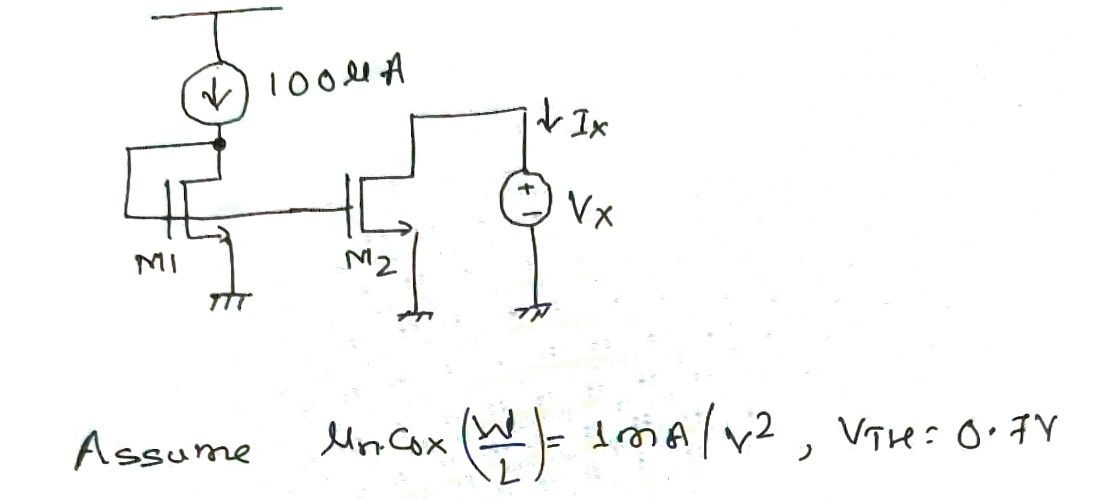 100 μA
↓ Ix
+
−
Vx
M1
M2
Assume μnCox (W/L) = 1mA/V², VTH = 0.7V